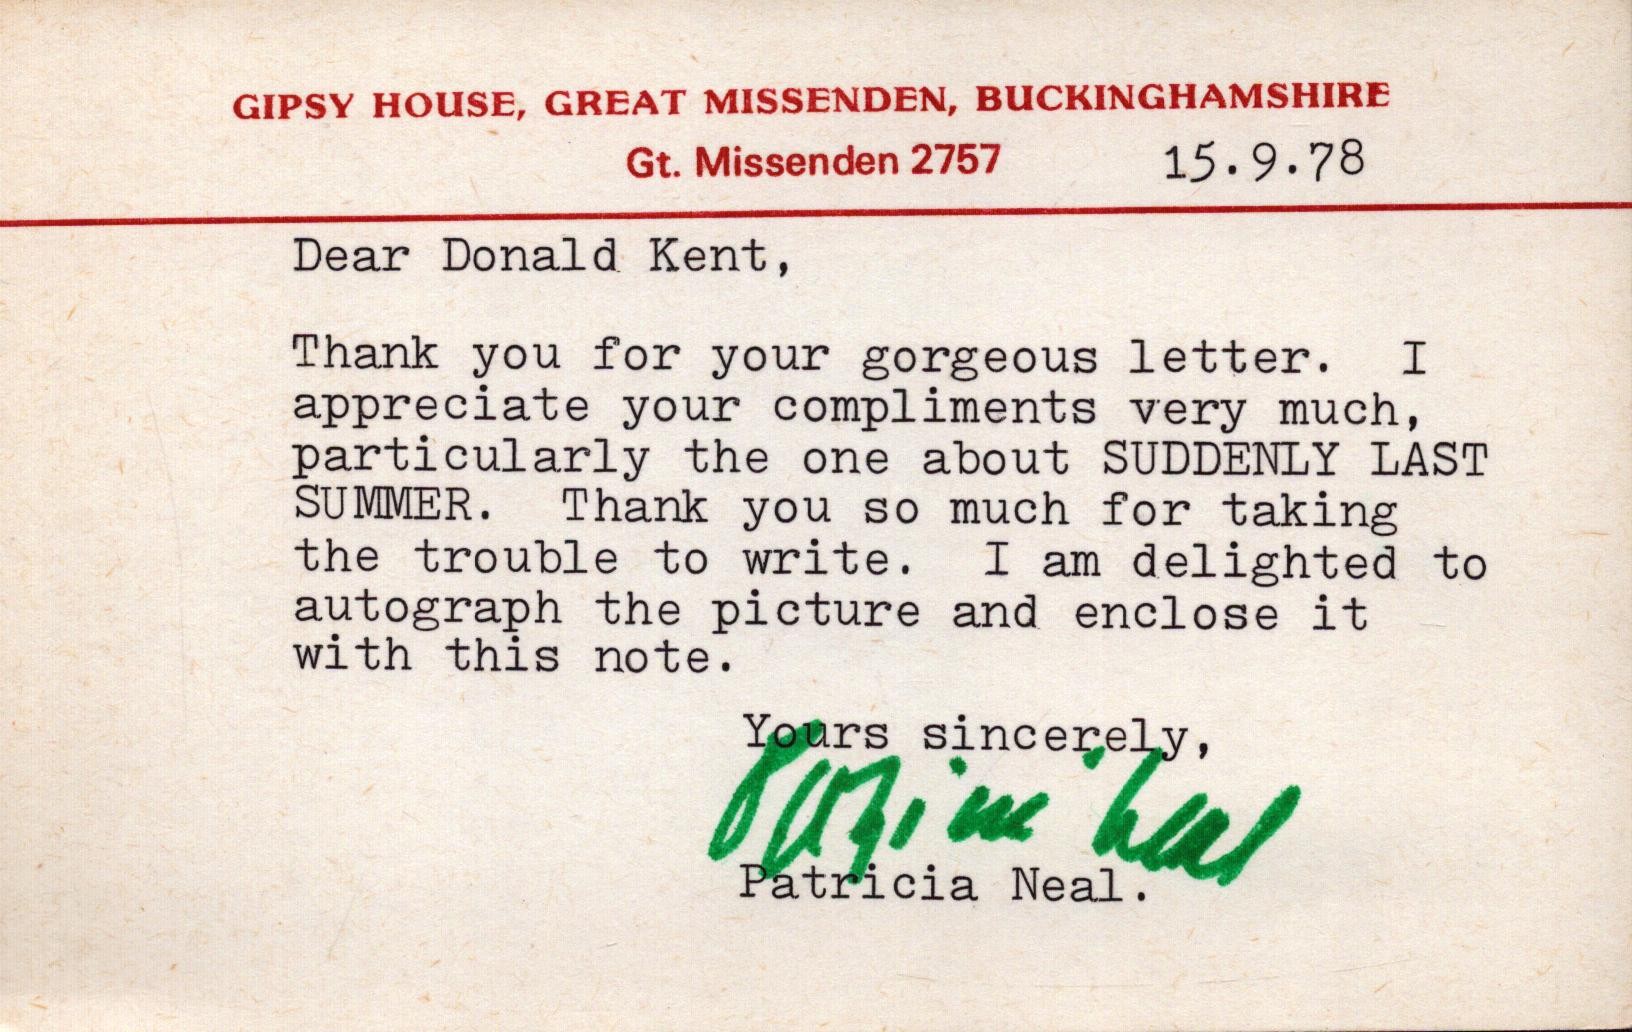 GIPSY HOUSE, GREAT MISSENDEN, BUCKINGHAMSHIRE
Gt. Missenden 2757 15.9.78
Dear Donald Kent,
Thank you for your gorgeous letter. I
appreciate your compliments very much,
particularly the one about SUDDENLY LAST
SUMMER. Thank you so much for taking
the trouble to write. I am delighted to
autograph the picture and enclose it
with this note.
Yours sincerely,
Patricia Neal
Patricia Neal.